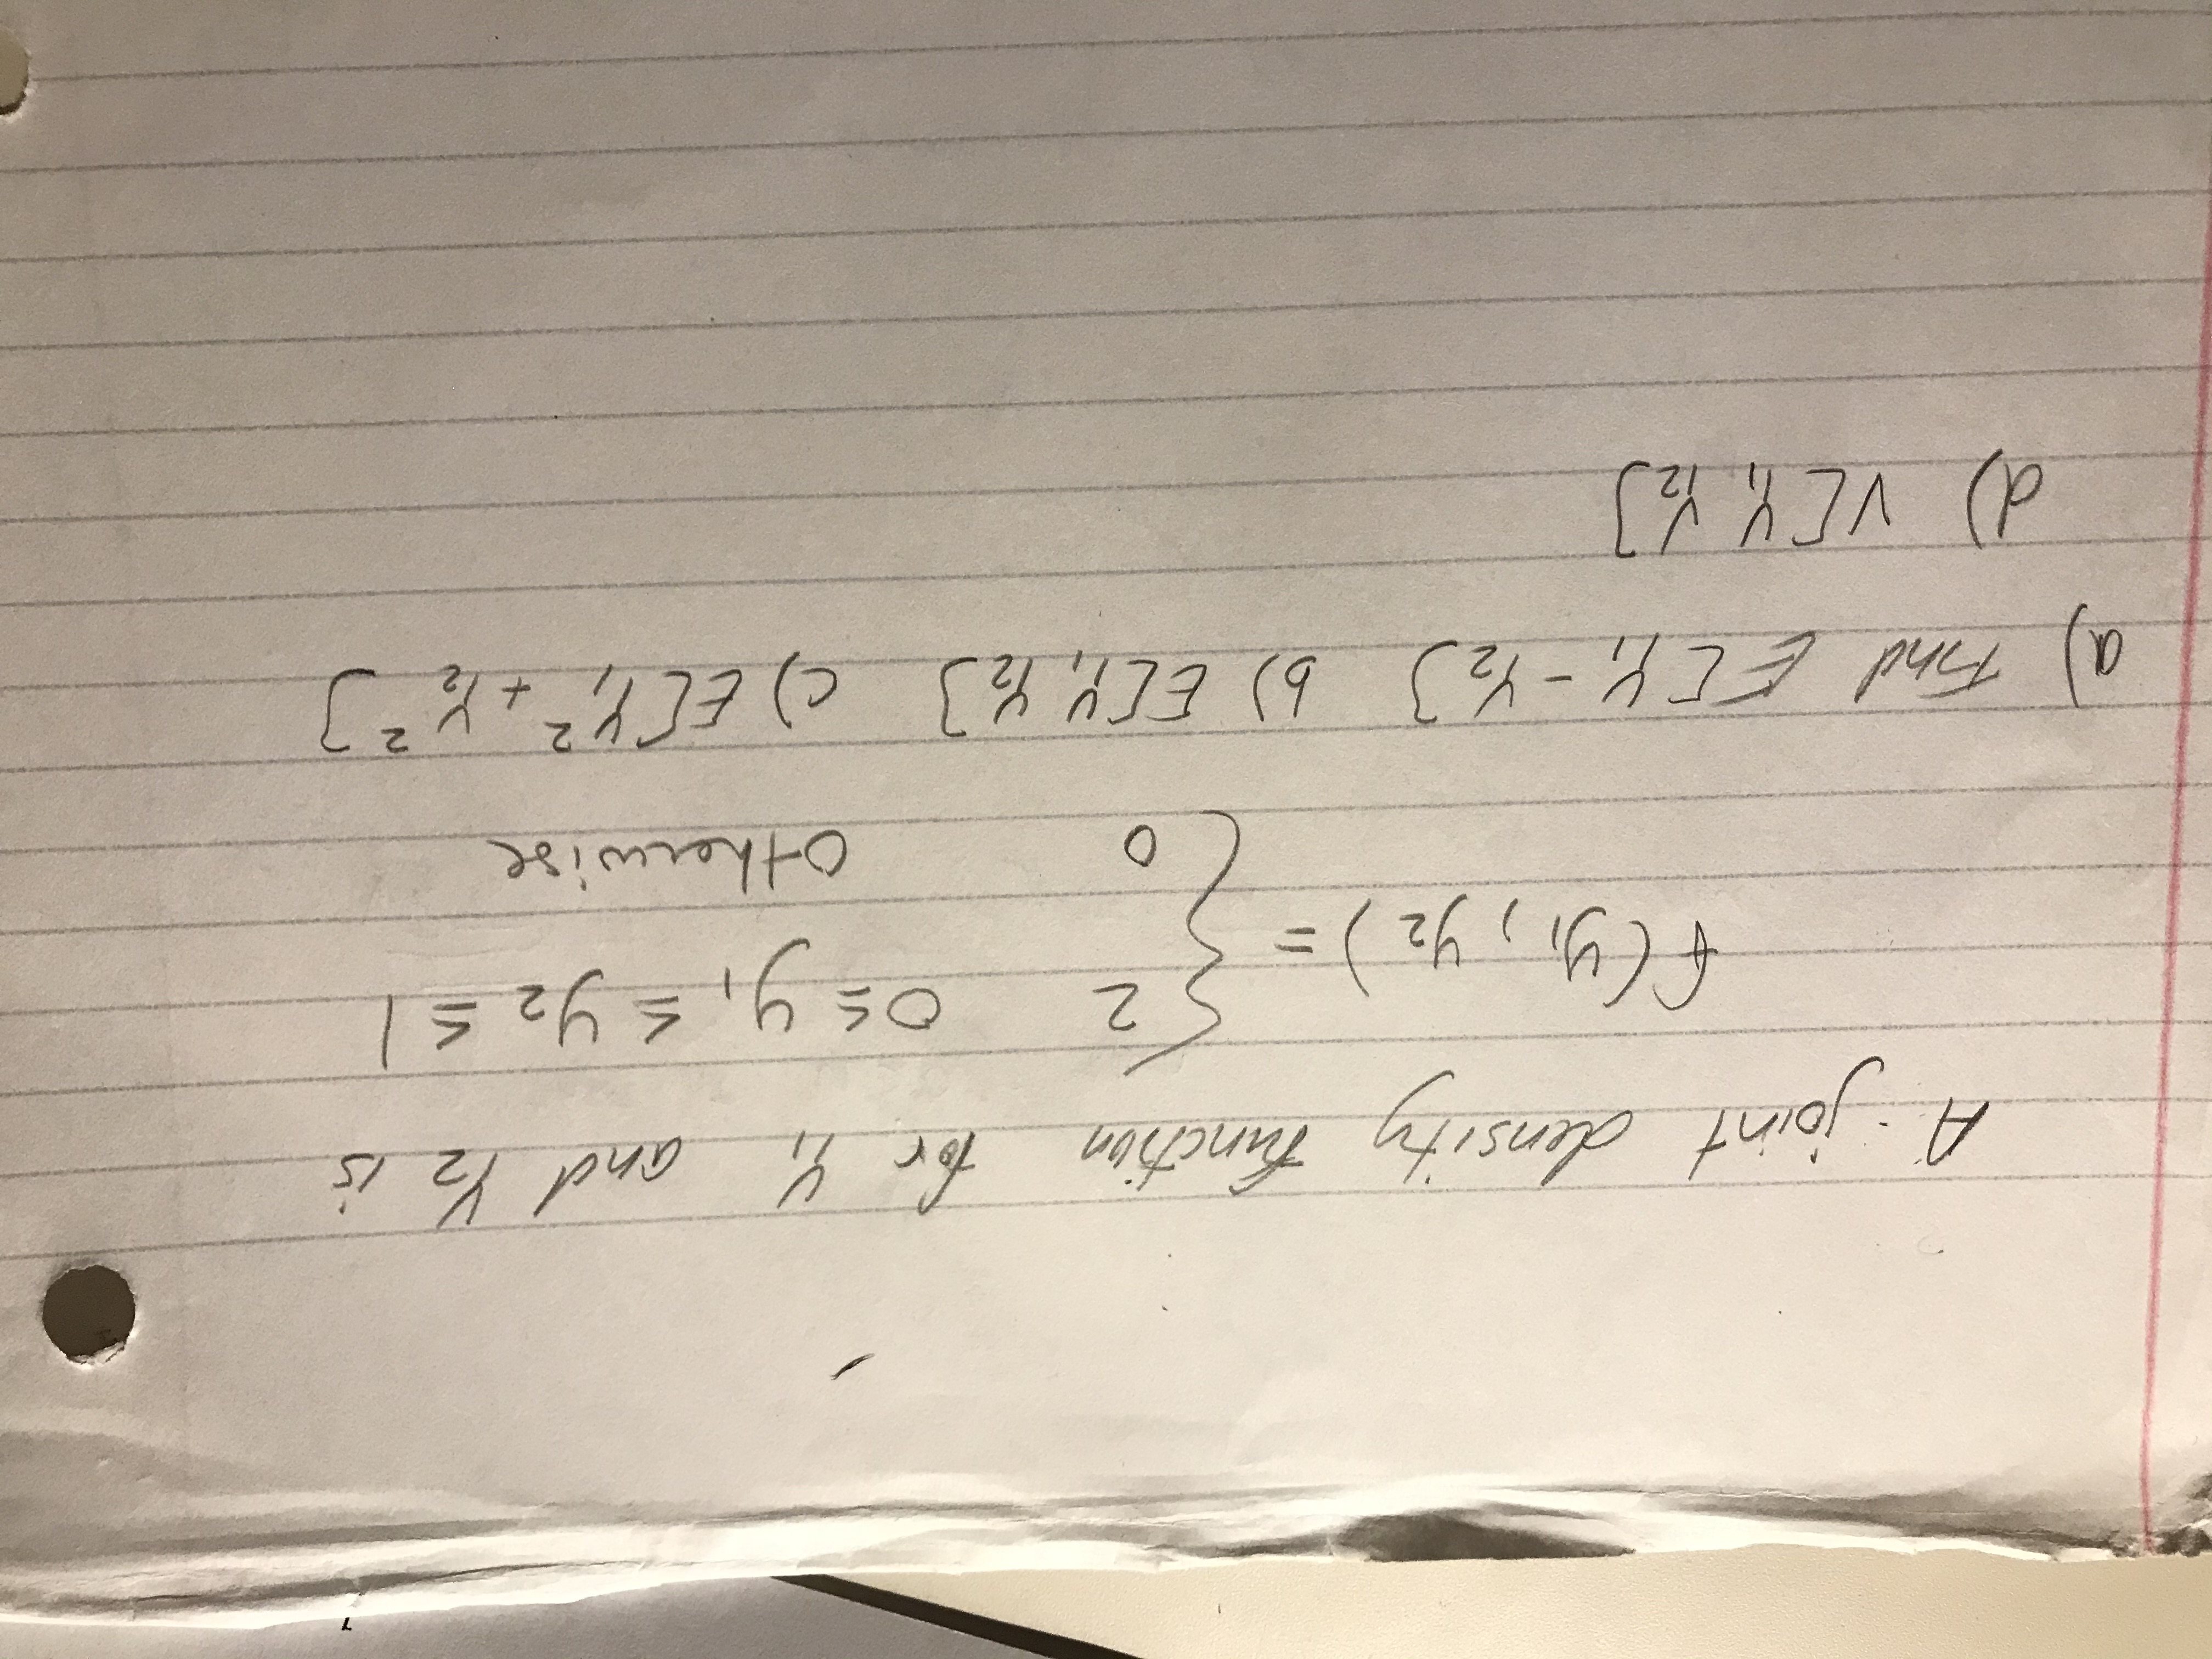 A joint density function for Y₁ and Y₂ is
f(y₁, y₂) = { 2 0 ≤ y₁ ≤ y₂ ≤ 1
0 otherwise
a) Find E[Y₁ - Y₂] b) E[Y₁ Y₂] c) E[Y₁² + Y₂²]
d) V[Y₁ Y₂]